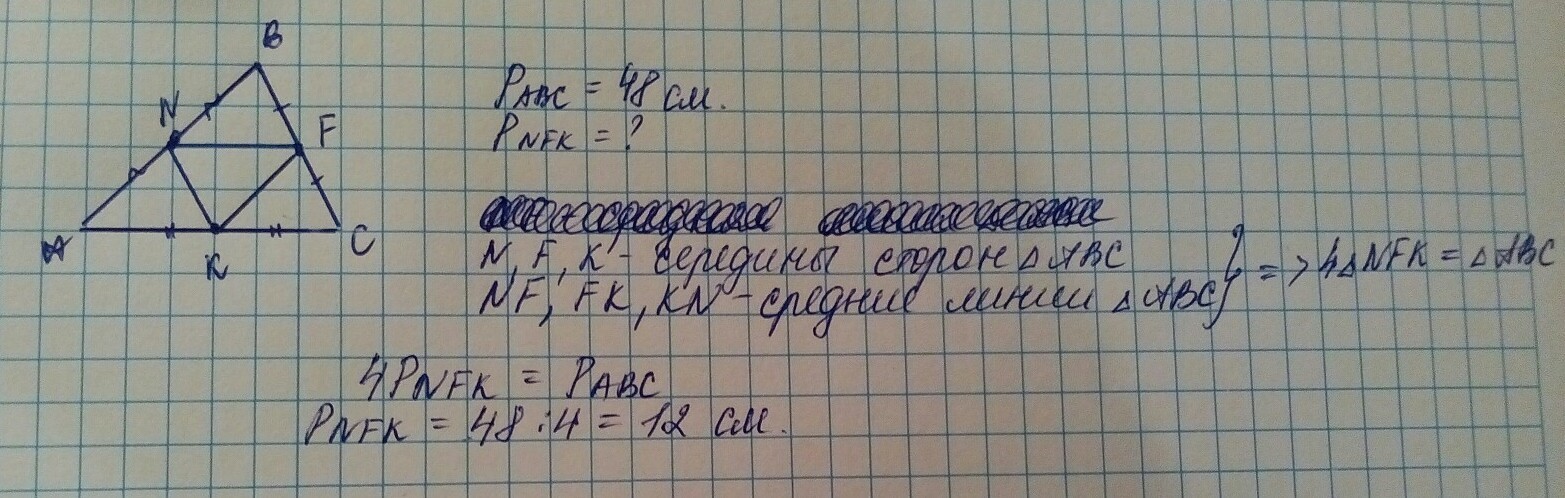 B
N
F
A
K
C
PABC = 48 см.
PNFK = ?
N, F, K - середины сторон △ ABC
NF, FK, KN - средние линии △ ABC } => 4△NFK = △ABC
4PNFK = PABC
PNFK = 48 : 4 = 12 см.